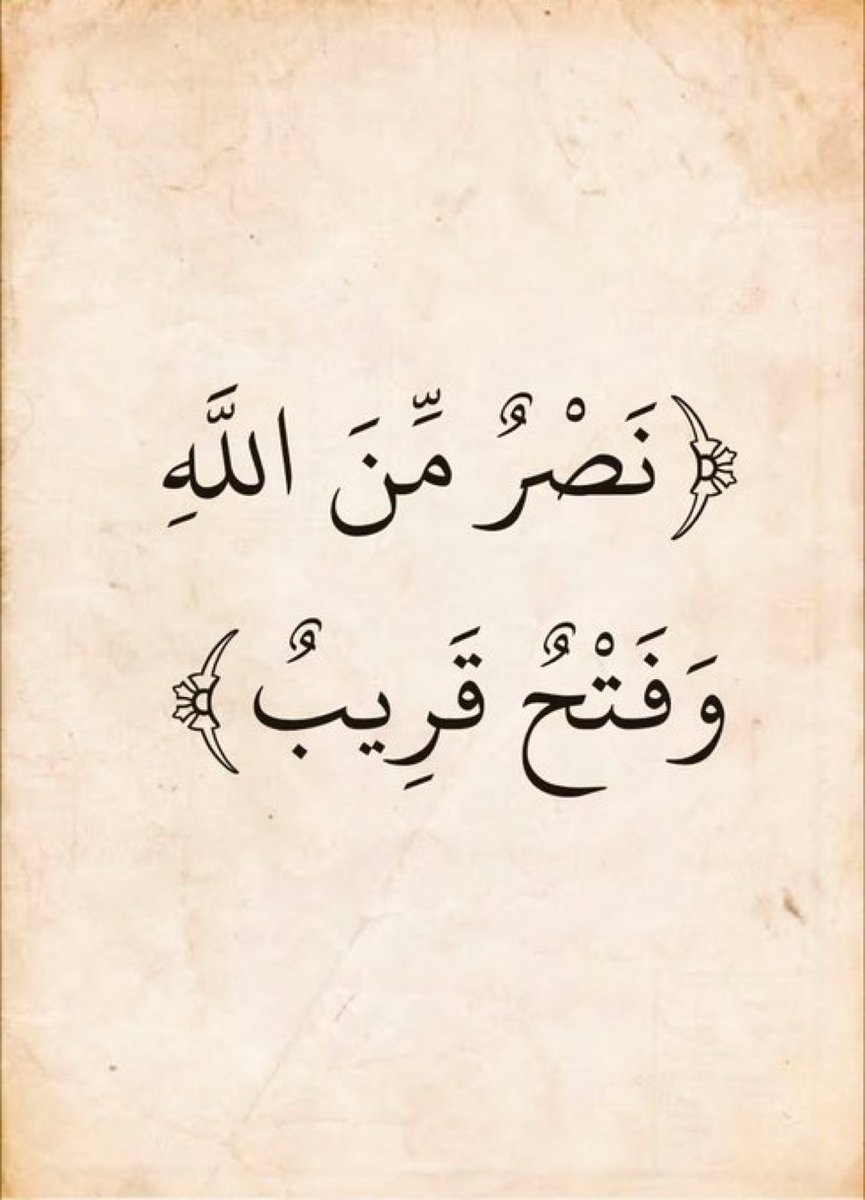 ﴿نَصْرٌ مِّنَ اللَّهِ
وَفَتْحٌ قَرِيبٌ﴾